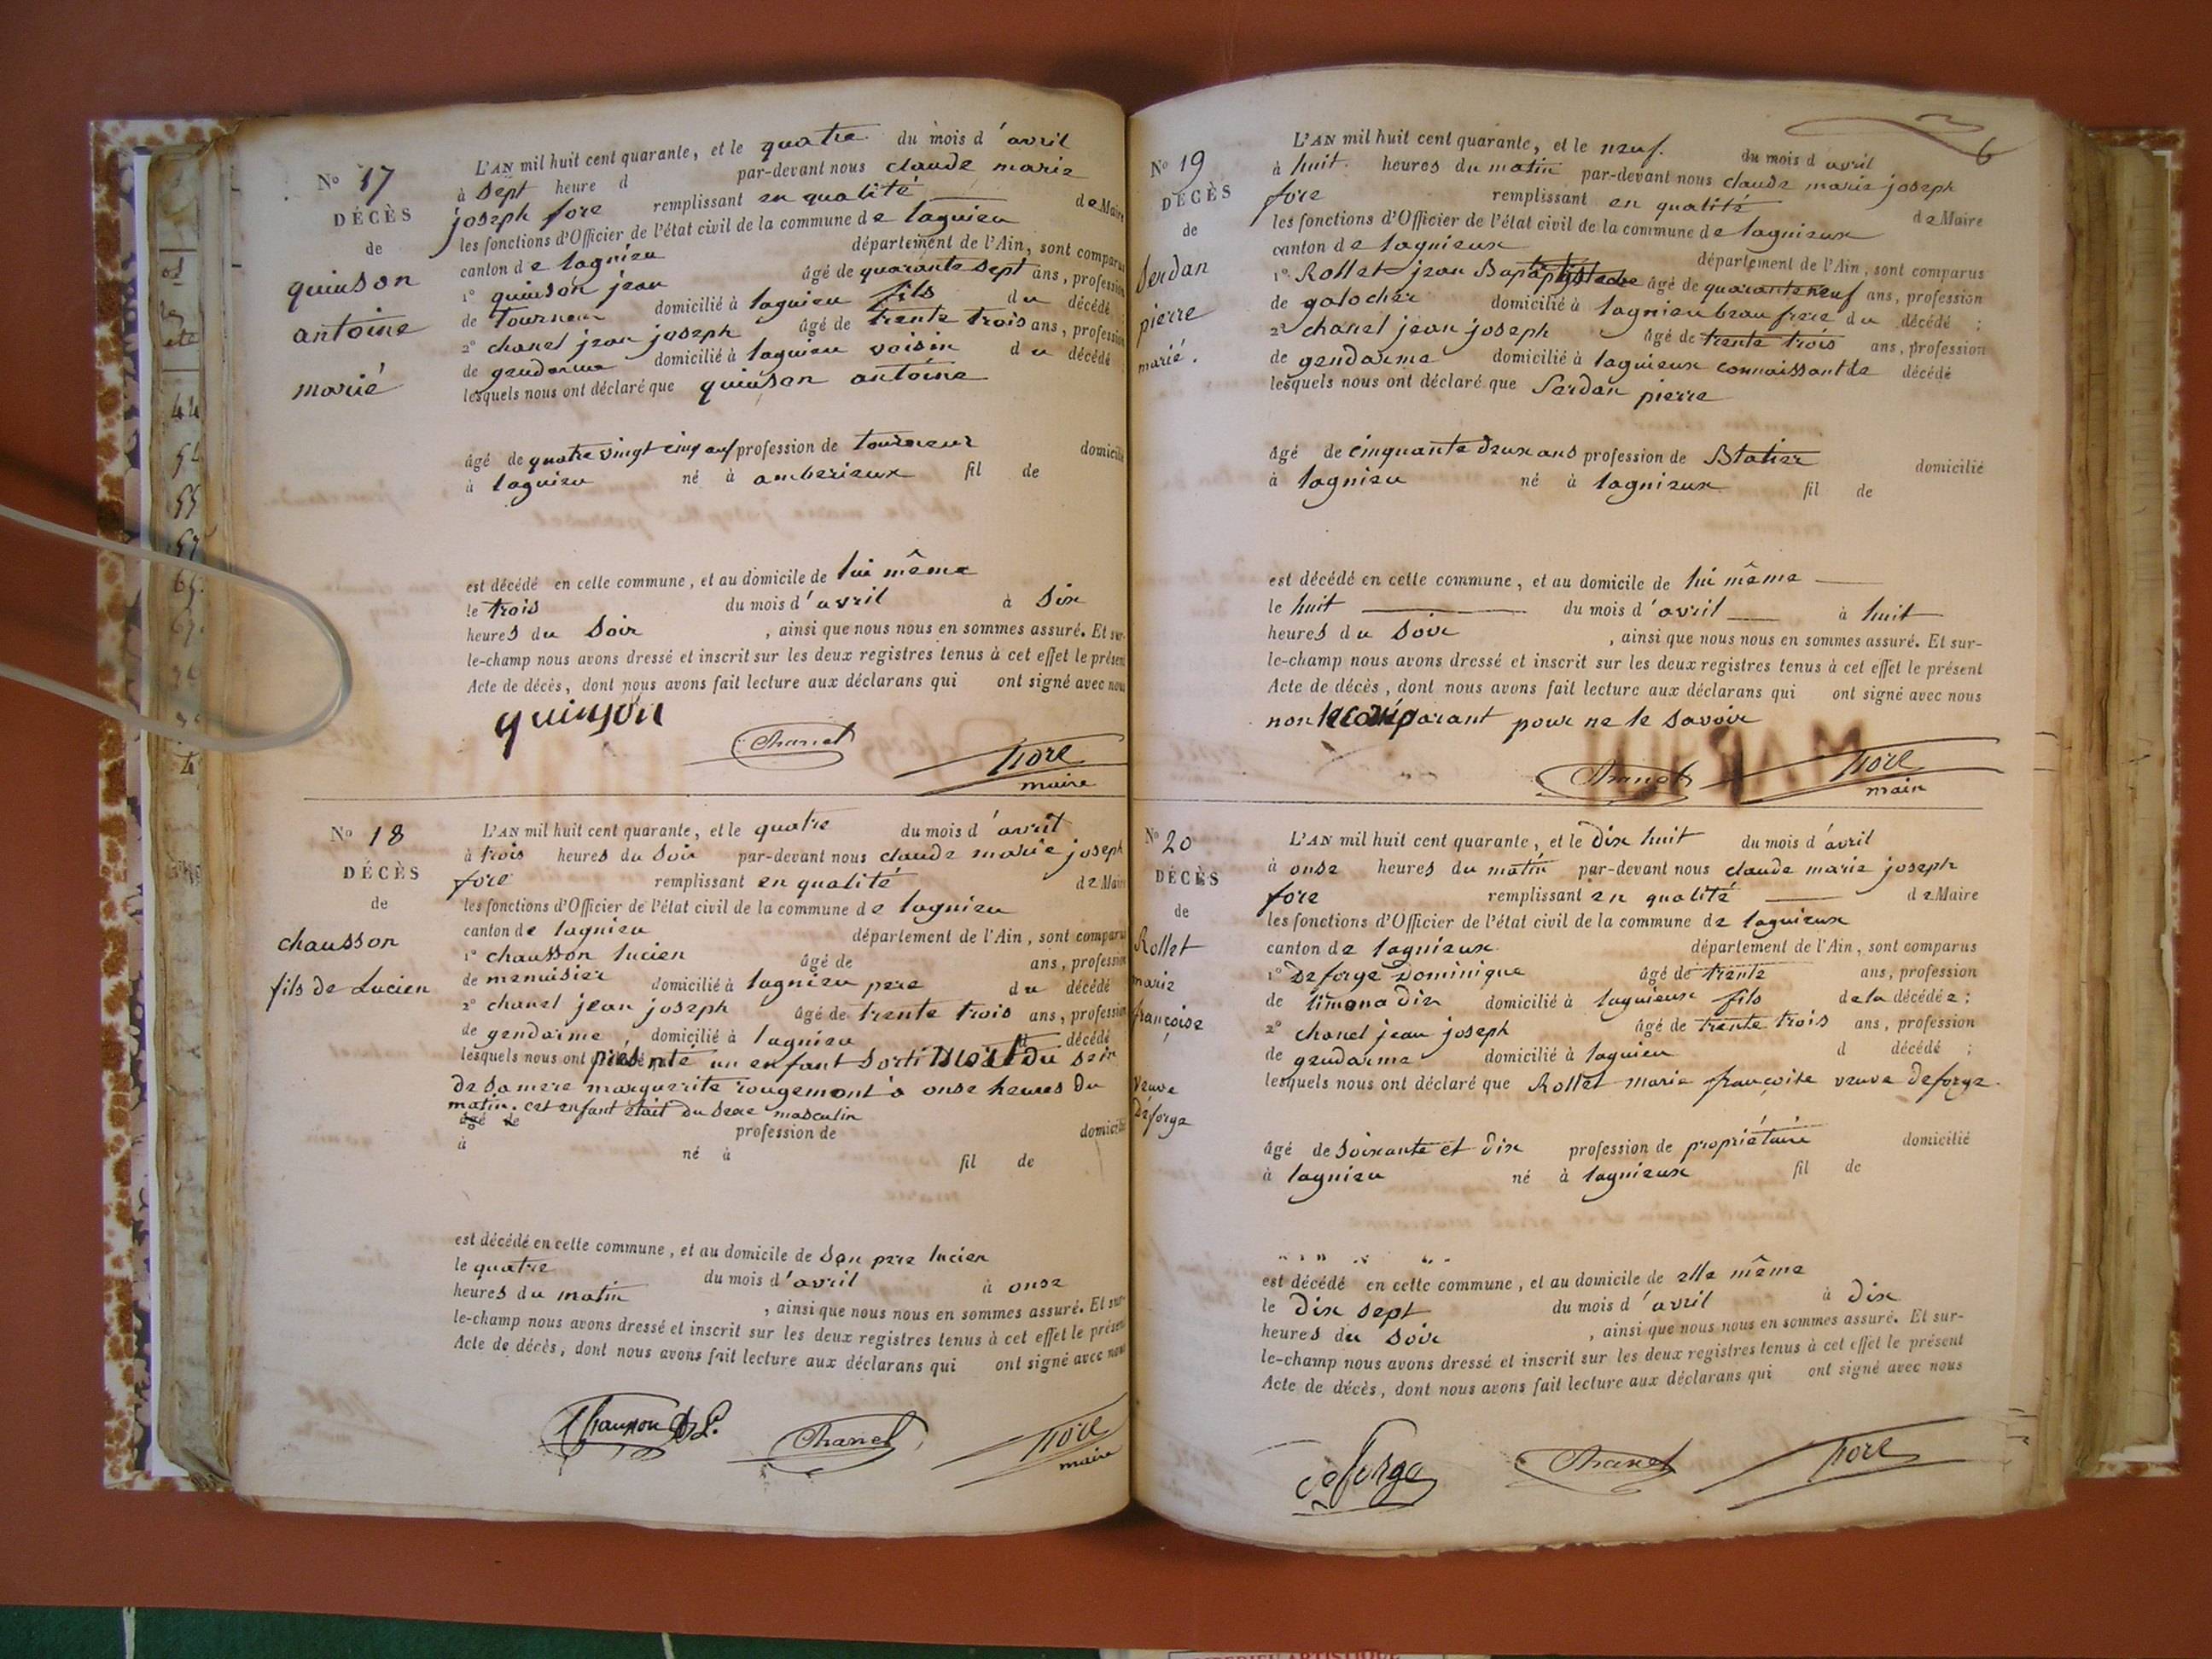 N° 17
DÉCÈS
de
quinson
antoine
marié
L'AN mil huit cent quarante, et le quatre du mois d'avril
à sept heure d par-devant nous claude marie
joseph fore remplissant en qualité de Maire
les fonctions d'Officier de l'état civil de la commune de lagnieu
canton de lagnieu département de l'Ain, sont comparus
1° quinson jean âgé de quarante sept ans, profession
de tourneur domicilié à lagnieu fils du décédé
2° chanel jean joseph âgé de trente trois ans, profession
de gendarme domicilié à lagnieu voisin du décédé
lesquels nous ont déclaré que quinson antoine
âgé de quatre vingt cinq ans profession de tourneur domicilié
à lagnieu né à amberieux fil de
est décédé en cette commune, et au domicile de lui même
le trois du mois d'avril à six
heures du soir , ainsi que nous nous en sommes assuré. Et sur-
le-champ nous avons dressé et inscrit sur les deux registres tenus à cet effet le présent
Acte de décès, dont nous avons fait lecture aux déclarans qui ont signé avec nous
quinson
Chanel
fore
maire
N° 18
DÉCÈS
de
chausson
fils de Lucien
L'AN mil huit cent quarante, et le quatre du mois d'avril
à trois heures du soir par-devant nous claude marie joseph
fore remplissant en qualité de Maire
les fonctions d'Officier de l'état civil de la commune de lagnieu
canton de lagnieu département de l'Ain, sont comparus
1° chausson lucien âgé de ans, profession
de menuisier domicilié à lagnieu pere du décédé
2° chanel jean joseph âgé de trente trois ans, profession
de gendarme domicilié à lagnieu décédé
lesquels nous ont présenté un enfant sorti mort du sein
de sa mere marguerite rougemont à onse heures du
matin. cet enfant était du sexe masculin
âgé de profession de domicilié
à né à fil de
est décédé en cette commune, et au domicile de son pere lucien
le quatre du mois d'avril à onse
heures du matin , ainsi que nous nous en sommes assuré. Et sur-
le-champ nous avons dressé et inscrit sur les deux registres tenus à cet effet le présent
Acte de décès, dont nous avons fait lecture aux déclarans qui ont signé avec nous
Chausson
Chanel
fore
maire
6
N° 19
DÉCÈS
de
Serdan
pierre
marié.
L'AN mil huit cent quarante, et le neuf. du mois d avril
à huit heures du matin par-devant nous claude marie joseph
fore remplissant en qualité de Maire
les fonctions d'Officier de l'état civil de la commune de lagnieux
canton de lagnieux département de l'Ain, sont comparus
1° Rollet jean Baptiste âgé de quarante neuf ans, profession
de galocher domicilié à lagnieu beau frere du décédé ;
2° chanel jean joseph âgé de trente trois ans, profession
de gendarme domicilié à lagnieux connaissant de décédé
lesquels nous ont déclaré que Serdan pierre
âgé de cinquante deux ans profession de Blatier domicilié
à lagnieu né à lagnieux fil de
est décédé en cette commune, et au domicile de lui même
le huit du mois d'avril à huit
heures du soir , ainsi que nous nous en sommes assuré. Et sur-
le-champ nous avons dressé et inscrit sur les deux registres tenus à cet effet le présent
Acte de décès, dont nous avons fait lecture aux déclarans qui ont signé avec nous
non le comparant pour ne le savoir
Chanel
fore
maire
N° 20
DÉCÈS
de
Rollet
marie
françoise
veuve
Deforge
L'AN mil huit cent quarante, et le dix huit du mois d'avril
à onse heures du matin par-devant nous claude marie joseph
fore remplissant en qualité de Maire
les fonctions d'Officier de l'état civil de la commune de lagnieux
canton de lagnieux département de l'Ain, sont comparus
1° Deforge Dominique âgé de trente ans, profession
de limonadier domicilié à lagnieux fils de la décédée ;
2° chanel jean joseph âgé de trente trois ans, profession
de gendarme domicilié à lagnieu d décédé ;
lesquels nous ont déclaré que Rollet marie françoise veuve deforge.
âgé de soixante et dix profession de propriétaire domicilié
à lagnieu né à lagnieux fil de
est décédé en cette commune, et au domicile de elle même
le dix sept du mois d'avril à dix
heures du soir , ainsi que nous nous en sommes assuré. Et sur-
le-champ nous avons dressé et inscrit sur les deux registres tenus à cet effet le présent
Acte de décès, dont nous avons fait lecture aux déclarans qui ont signé avec nous
deforge
Chanel
fore